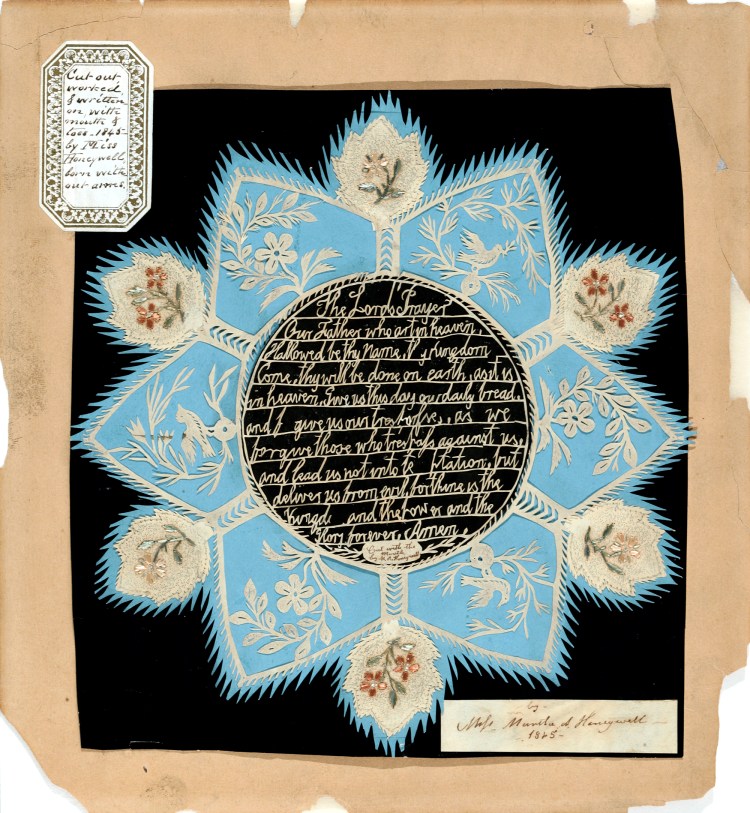 Cut out
worked
& written
on, with
mouth &
toes - 1845 -
by Miss
Honeywell,
born with
out arms.
The Lords Prayer
Our Father who art in heaven,
Hallowed be thy Name, kingdom
Come, thy will be done on earth, as it is
in heaven, Give us this day our daily bread,
and f give us our trespasses, as we
forgive those who trespass against us,
and lead us not into te tation, but
deliver us from evil for thine is the
Kingd and the Power and the
Glory forever, Amen.
Cut with the
Mouth
by M. A. Honeywell
by
Miss Martha A. Honeywell
1845 -